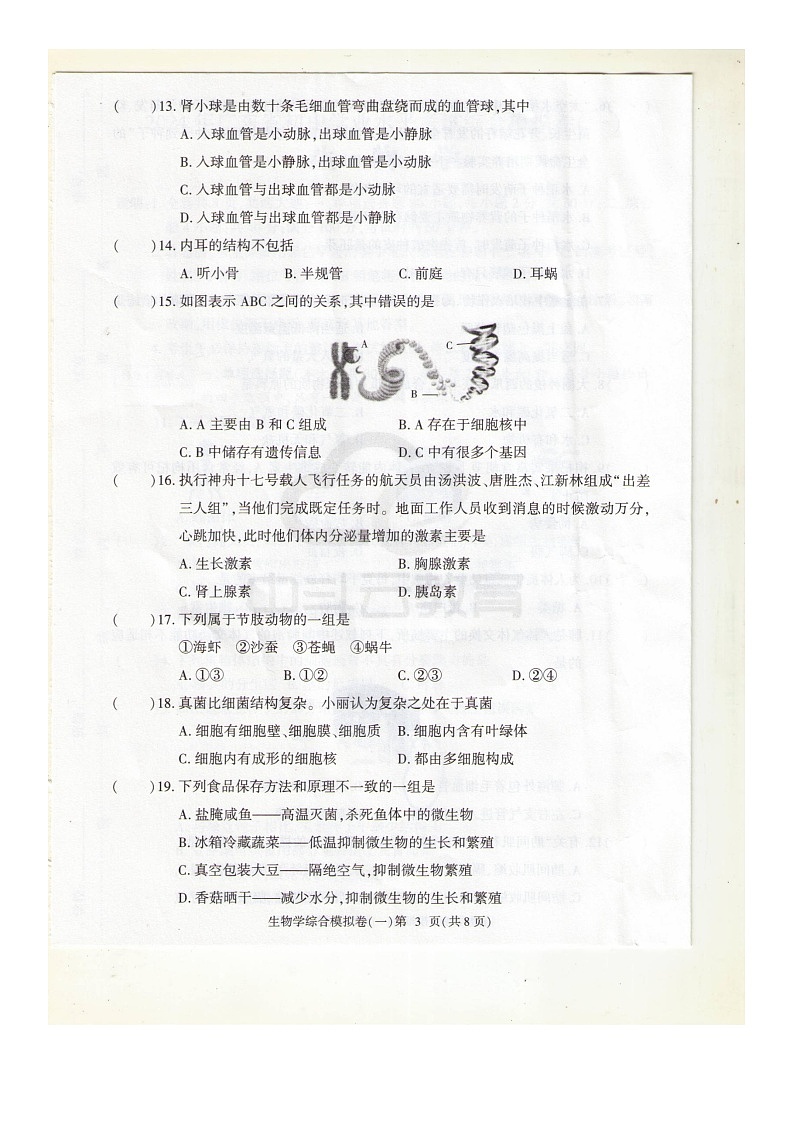 (　　)13. 肾小球是由数十条毛细血管弯曲盘绕而成的血管球,其中
A. 入球血管是小动脉,出球血管是小静脉
B. 入球血管是小静脉,出球血管是小动脉
C. 入球血管与出球血管都是小动脉
D. 入球血管与出球血管都是小静脉
(　　)14. 内耳的结构不包括
A. 听小骨　B. 半规管　C. 前庭　D. 耳蜗
(　　)15. 如图表示 ABC 之间的关系,其中错误的是
A
C
B
A. A 主要由 B 和 C 组成　B. A 存在于细胞核中
C. B 中储存有遗传信息　D. C 中有很多个基因
(　　)16. 执行神舟十七号载人飞行任务的航天员由汤洪波、唐胜杰、江新林组成“出差
三人组”,当他们完成既定任务时。地面工作人员收到消息的时候激动万分,
心跳加快,此时他们体内分泌量增加的激素主要是
A. 生长激素　B. 胸腺激素
C. 肾上腺素　D. 胰岛素
中华云教育
(　　)17. 下列属于节肢动物的一组是
①海虾　②沙蚕　③苍蝇　④蜗牛
A. ①③　B. ①②　C. ②③　D. ②④
(　　)18. 真菌比细菌结构复杂。小丽认为复杂之处在于真菌
A. 细胞有细胞壁、细胞膜、细胞质　B. 细胞内含有叶绿体
C. 细胞内有成形的细胞核　D. 都由多细胞构成
(　　)19. 下列食品保存方法和原理不一致的一组是
A. 盐腌咸鱼——高温灭菌,杀死鱼体中的微生物
B. 冰箱冷藏蔬菜——低温抑制微生物的生长和繁殖
C. 真空包装大豆——隔绝空气,抑制微生物繁殖
D. 香菇晒干——减少水分,抑制微生物的生长和繁殖
生物学综合模拟卷(一)第 3 页(共 8 页)